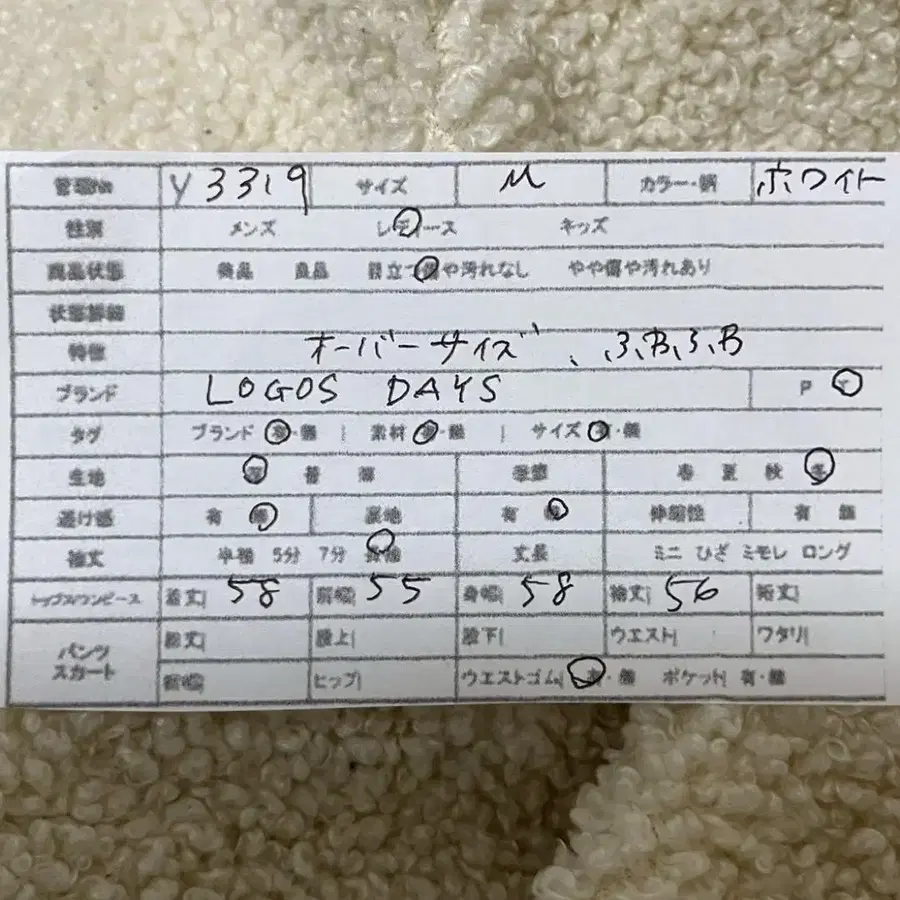 管理No Y3319 サイズ M カラー・柄 ホワイト
性別 メンズ レディース キッズ
商品状態 美品 良品 目立つ傷や汚れなし やや傷や汚れあり
状態詳細
特徴 オーバーサイズ、
ブランド LOGOS DAYS P Y
タグ ブランド 有・無 | 素材 有・無 | サイズ 有・無
生地 厚 普 薄 季節 春 夏 秋 冬
透け感 有 無 裏地 有 無 伸縮性 有 無
袖丈 半袖 5分 7分 長袖 丈長 ミニ ひざ ミモレ ロング
トップス/ワンピース 着丈 58 肩幅 55 身幅 58 袖丈 56 裄丈
パンツ スカート 総丈 股上 股下 ウエスト ワタリ
裾幅 ヒップ ウエストゴム 有・無 ポケット 有・無